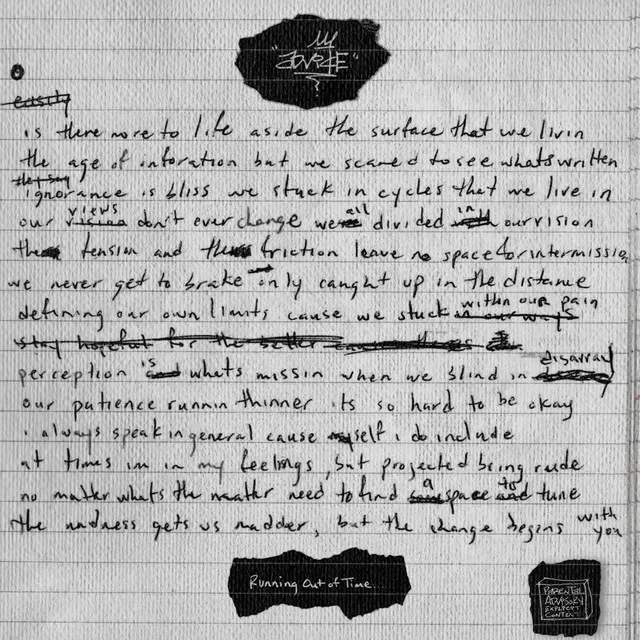 "SOURCE"
easily
is there more to life aside the surface that we livin
the age of inforation but we scared to see whats written
they say
ignorance is bliss we stuck in cycles that we live in
our views don't ever change we all divided in our vision
the tension and the friction leave no space for intermission
we never get to brake only caught up in the distance
defining our own limits cause we stuck within our pain
in our ways
stay hopeful for the better
perception is whats missin when we blind in disarray
our patience runnin thinner its so hard to be okay
i always speak in general cause myself i do include
at times im in my feelings, but projected being rude
no matter whats the matter need to find a space to tune
the madness gets us madder, but the change begins with you
Running Out of Time.
PARENTAL
ADVISORY
EXPLICIT
CONTENT